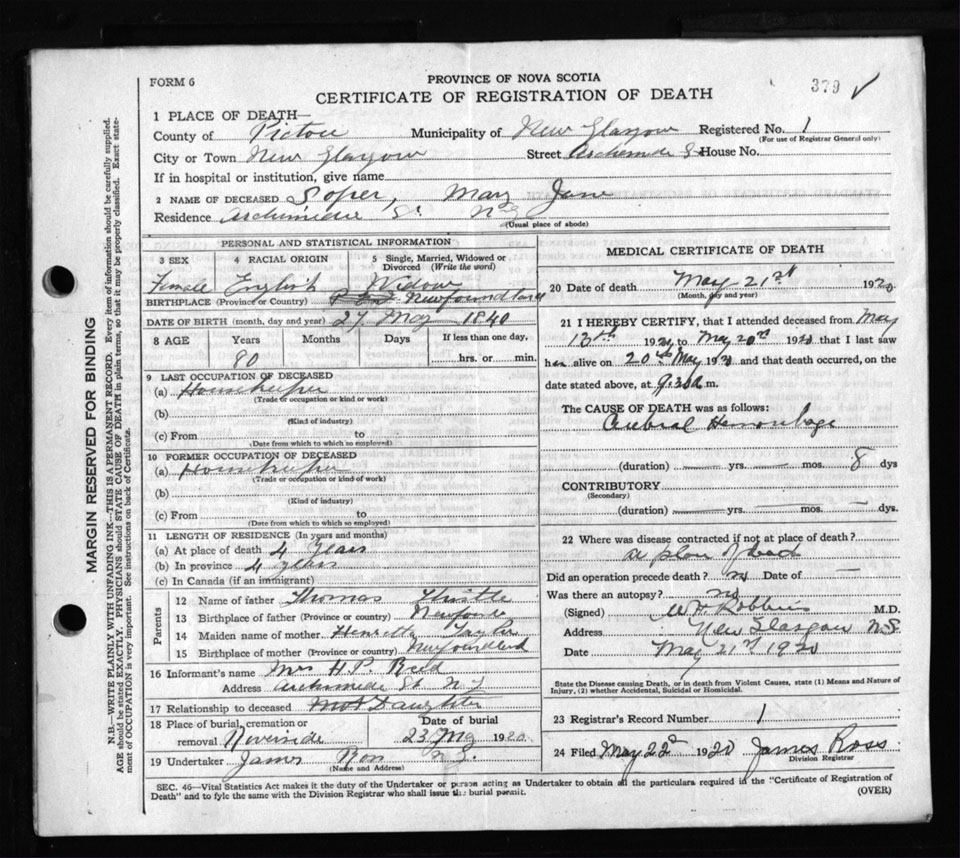 FORM 6
PROVINCE OF NOVA SCOTIA
379 ✓
CERTIFICATE OF REGISTRATION OF DEATH
1 PLACE OF DEATH—
County of Pictou Municipality of New Glasgow Registered No. 1
(For use of Registrar General only)
City or Town New Glasgow Street Archimede St House No.
If in hospital or institution, give name
2 NAME OF DECEASED Soper, Mary Jane
Residence Archimedie St N.G.
(Usual place of abode)
PERSONAL AND STATISTICAL INFORMATION
3 SEX 4 RACIAL ORIGIN 5 Single, Married, Widowed or Divorced (Write the word)
Female English Widow
BIRTHPLACE (Province or Country) Newfoundland
DATE OF BIRTH (month, day and year) 27 May 1840
8 AGE Years Months Days If less than one day,
80 hrs. or min.
9 LAST OCCUPATION OF DECEASED
(a) Housekeeper
(Trade or occupation or kind or work)
(b)
(Kind of industry)
(c) From to
(Date from which to which so employed)
10 FORMER OCCUPATION OF DECEASED
(a) Housekeeper
(Trade or occupation or kind or work)
(b)
(Kind of industry)
(c) From to
(Date from which to which so employed)
11 LENGTH OF RESIDENCE (In years and months)
(a) At place of death 4 years
(b) In province 4 years
(c) In Canada (if an immigrant)
Parents
12 Name of father Thomas Thistle
13 Birthplace of father (Province or country)
14 Maiden name of mother Henretta Taylor
15 Birthplace of mother (Province or country) Newfoundland
16 Informant's name Mrs H.P. Reid
Address Archimede St N.G
17 Relationship to deceased Daughter
18 Place of burial, cremation or removal Riverside
Date of burial 23 May 1920
19 Undertaker James Ross N.G.
(Name and Address)
MEDICAL CERTIFICATE OF DEATH
20 Date of death May 21st 1920
(Month, day and year)
21 I HEREBY CERTIFY, that I attended deceased from May
13th 1920 to May 20th 1920 that I last saw
her alive on 20th May 1920 and that death occurred, on the
date stated above, at 9.30 a m.
The CAUSE OF DEATH was as follows:
Cerebral Hemorrhage
(duration) — yrs. — mos. 8 dys
CONTRIBUTORY
(Secondary)
(duration) — yrs. — mos. — dys.
22 Where was disease contracted if not at place of death?
at place of death
Did an operation precede death? no Date of —
Was there an autopsy? no
(Signed) W H Robbins M.D.
Address New Glasgow N.S
Date May 21st 1920
State the Disease causing Death, or in death from Violent Causes, state (1) Means and Nature of
Injury, (2) whether Accidental, Suicidal or Homicidal.
23 Registrar's Record Number 1
24 Filed May 22d 1920 James Ross
Division Registrar
SEC. 46—Vital Statistics Act makes it the duty of the Undertaker or person acting as Undertaker to obtain all the particulars required in the "Certificate of Registration of
Death" and to fyle the same with the Division Registrar who shall issue the burial permit.
(OVER)
MARGIN RESERVED FOR BINDING
N.B.—WRITE PLAINLY WITH UNFADING INK—THIS IS A PERMANENT RECORD. Every item of information should be carefully supplied.
AGE should be stated EXACTLY. PHYSICIANS should STATE CAUSE OF DEATH in plain terms, so that it may be properly classified. Exact state-
ment of OCCUPATION is very important. See instructions on back of Certificate.